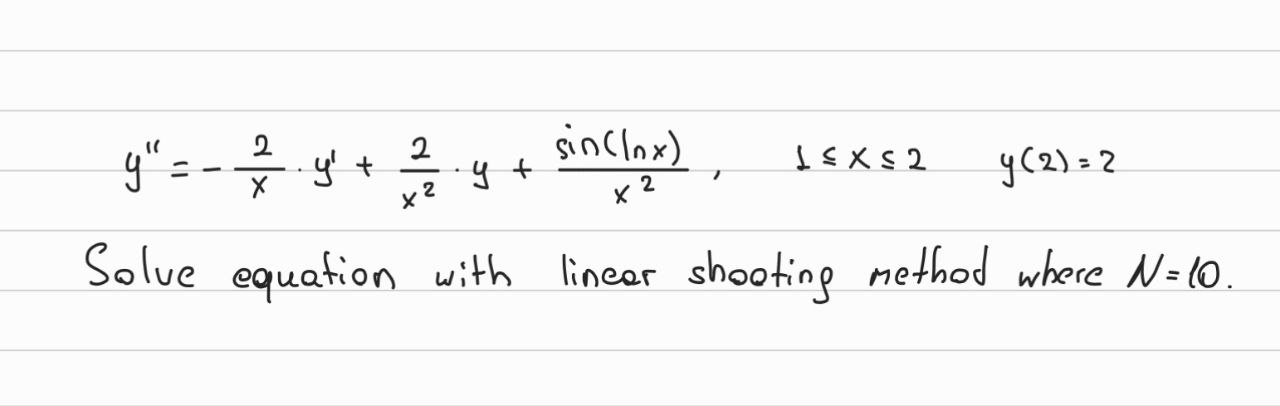 y'' = - 2/x · y' + 2/x² · y + sin(ln x)/x² , 1 ≤ x ≤ 2 y(2) = 2
Solve equation with linear shooting method where N=10.